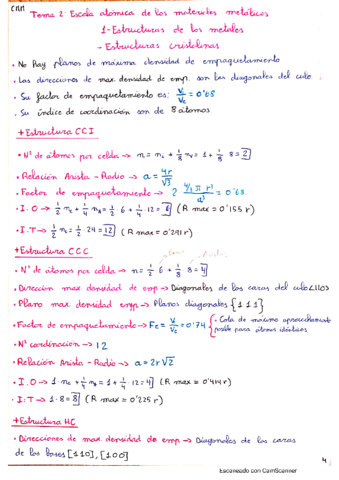 CMM
Tema 2: Escala atómica de los materiales metálicos
1-Estructuras de los metales
- Estructuras cristalinas
• No hay planos de máxima densidad de empaquetamiento
• Las direcciones de max. densidad de emp. son las diagonales del cubo
• Su factor de empaquetamiento es: Vi/Vc = 0'68
• Su índice de coordinación son de 8 átomos
+ Estructura CCI
• Nº de átomos por celda → n = nc + 1/8 nv = 1 + 1/8 · 8 = 2
• Relación Arista - Radio → a = 4r/√3
• Factor de empaquetamiento → 2 4/3 π r³/a³ = 0'68
• I.O → 1/2 nc + 1/4 na = 1/2 · 6 + 1/4 · 12 = 6 (R max = 0'155 r)
• I.T → 1/2 nc = 1/2 · 24 = 12 (R max = 0'291 r)
+ Estructura CCC
• Nº de átomos por celda → n = 1/2 · 6 + 1/8 · 8 = 4
• Dirección max densidad de emp → Diagonales de las caras del cubo <110>
• Plano max. densidad emp → Planos diagonales {111}
• Factor de empaquetamiento → Fe = Vi/Vc = 0'74
- Cota de máximo aprovechamiento
posible para átomos idénticos
• Nº coordinación → 12
• Relación Arista - Radio → a = 2r√2
• I.O → 1 · nc + 1/4 na = 1 + 1/4 · 12 = 4 (R max = 0'414 r)
• I.T → 1 · 8 = 8 (R max = 0'225 r)
+ Estructura HC
• Direcciones de max. densidad de emp → Diagonales de las caras
de las bases [110], [100]
4
Escaneado con CamScanner